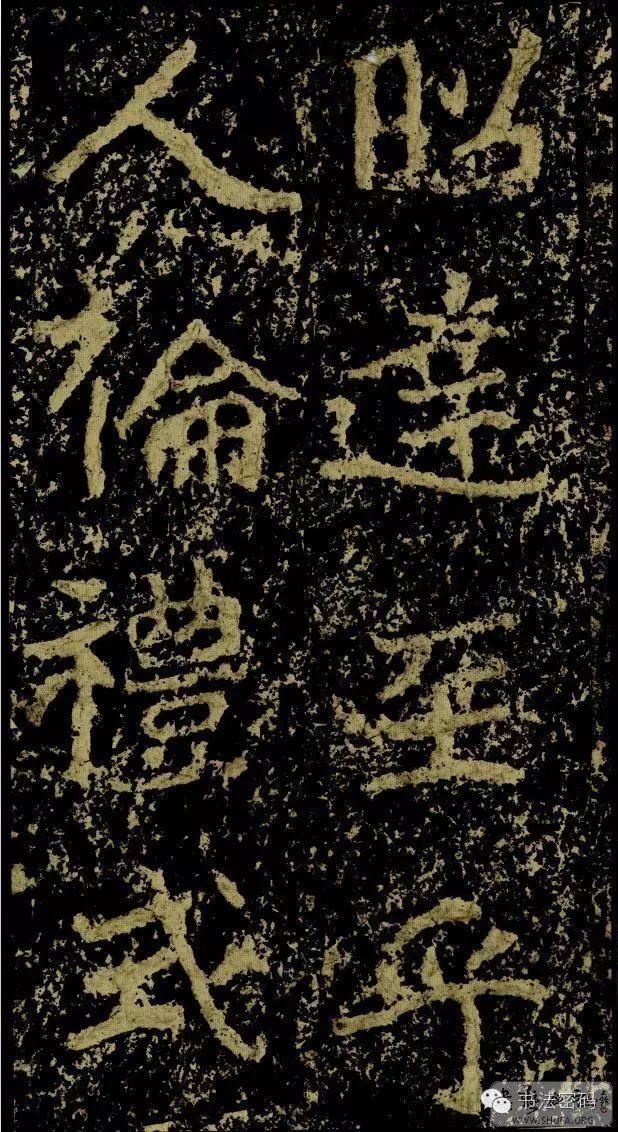 昭達至乎
人倫禮式
书法密码
WWW.SHUFA.ORG